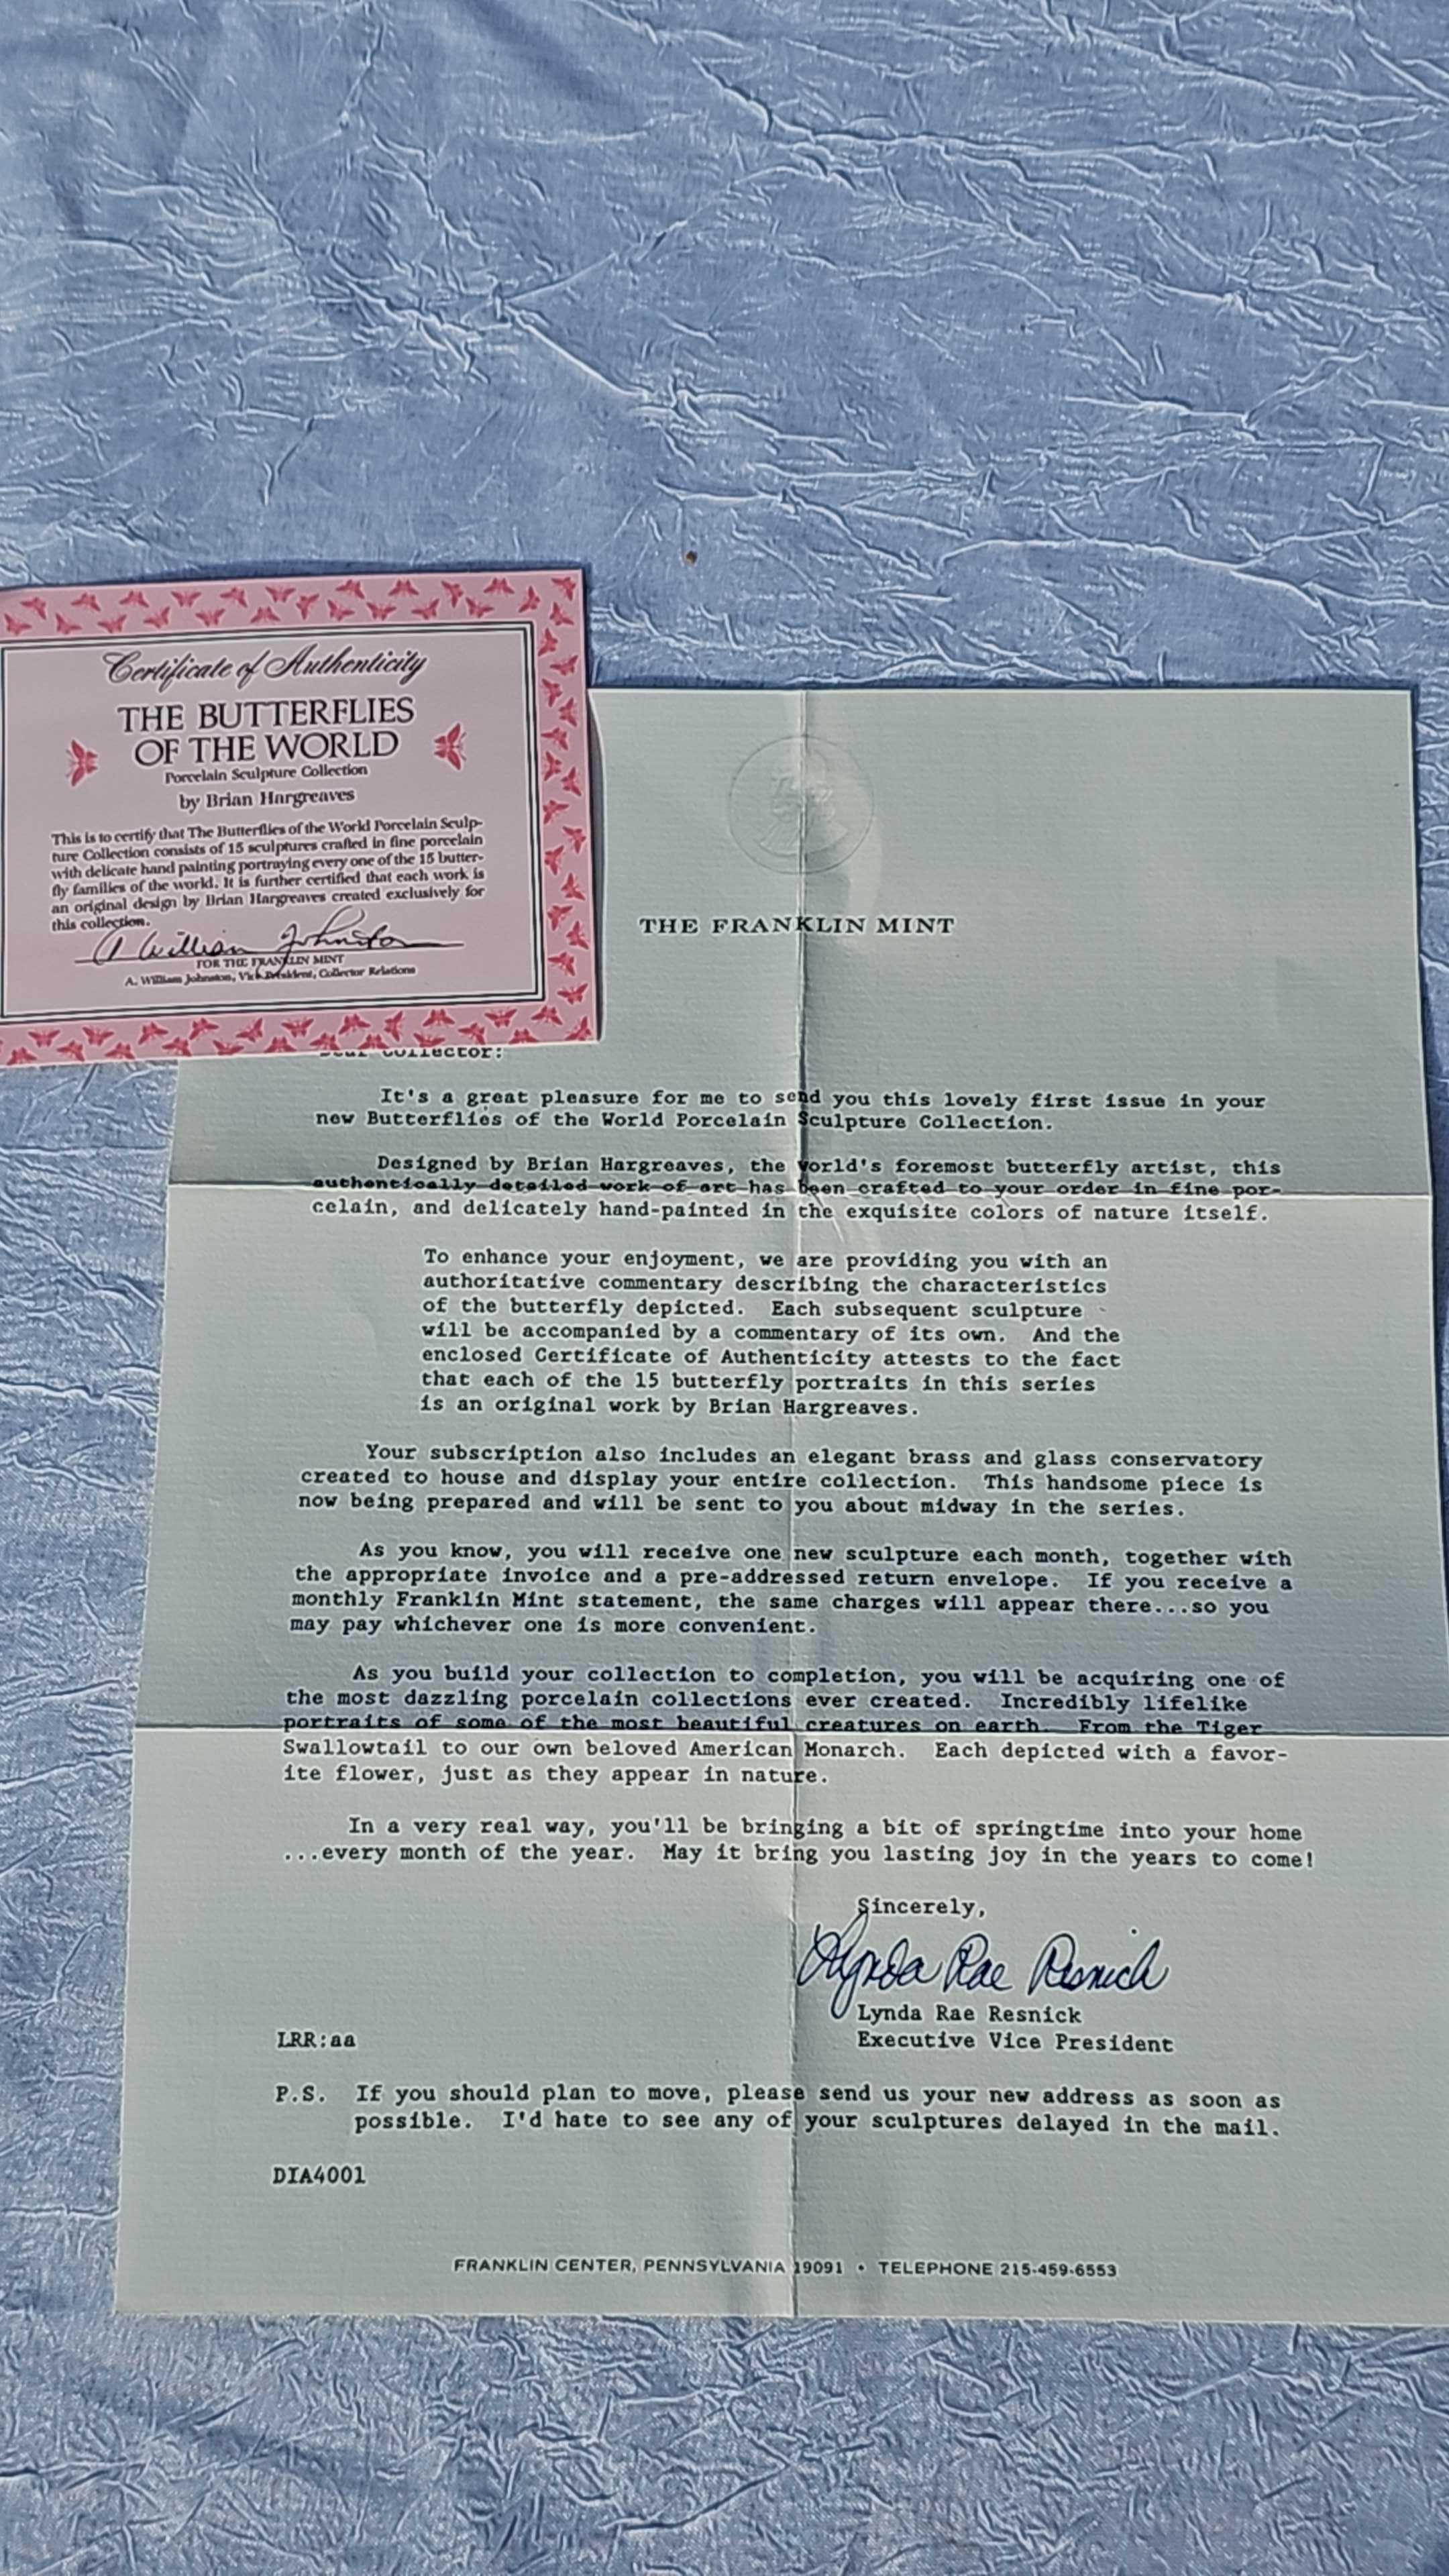 Certificate of Authenticity
THE BUTTERFLIES
OF THE WORLD
Porcelain Sculpture Collection
by Brian Hargreaves
This is to certify that The Butterflies of the World Porcelain Sculp-
ture Collection consists of 15 sculptures crafted in fine porcelain
with delicate hand painting portraying every one of the 15 butter-
fly families of the world. It is further certified that each work is
an original design by Brian Hargreaves created exclusively for
this collection.
A William Johnston
FOR THE FRANKLIN MINT
A. William Johnston, Vice President, Collector Relations
THE FRANKLIN MINT
Dear Collector:
It's a great pleasure for me to send you this lovely first issue in your
new Butterflies of the World Porcelain Sculpture Collection.
Designed by Brian Hargreaves, the world's foremost butterfly artist, this
authentically detailed work of art has been crafted to your order in fine por-
celain, and delicately hand-painted in the exquisite colors of nature itself.
To enhance your enjoyment, we are providing you with an
authoritative commentary describing the characteristics
of the butterfly depicted. Each subsequent sculpture
will be accompanied by a commentary of its own. And the
enclosed Certificate of Authenticity attests to the fact
that each of the 15 butterfly portraits in this series
is an original work by Brian Hargreaves.
Your subscription also includes an elegant brass and glass conservatory
created to house and display your entire collection. This handsome piece is
now being prepared and will be sent to you about midway in the series.
As you know, you will receive one new sculpture each month, together with
the appropriate invoice and a pre-addressed return envelope. If you receive a
monthly Franklin Mint statement, the same charges will appear there...so you
may pay whichever one is more convenient.
As you build your collection to completion, you will be acquiring one of
the most dazzling porcelain collections ever created. Incredibly lifelike
portraits of some of the most beautiful creatures on earth. From the Tiger
Swallowtail to our own beloved American Monarch. Each depicted with a favor-
ite flower, just as they appear in nature.
In a very real way, you'll be bringing a bit of springtime into your home
...every month of the year. May it bring you lasting joy in the years to come!
Sincerely,
Lynda Rae Resnick
Lynda Rae Resnick
Executive Vice President
LRR:aa
P.S. If you should plan to move, please send us your new address as soon as
possible. I'd hate to see any of your sculptures delayed in the mail.
DIA4001
FRANKLIN CENTER, PENNSYLVANIA 19091 • TELEPHONE 215-459-6553